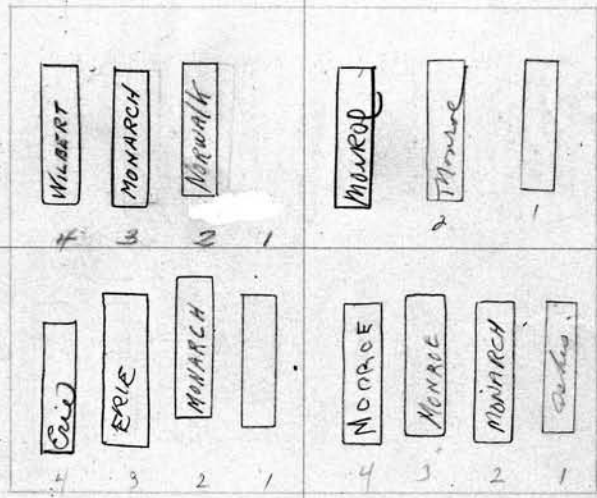 WILBERT
MONARCH
NORWALK
4 3 2 1
MONROE
Monroe
2 1
Erie
ERIE
MONARCH
4 3 2 1
MOOROE
MONROE
MONARCH
Ashes.
4 3 2 1